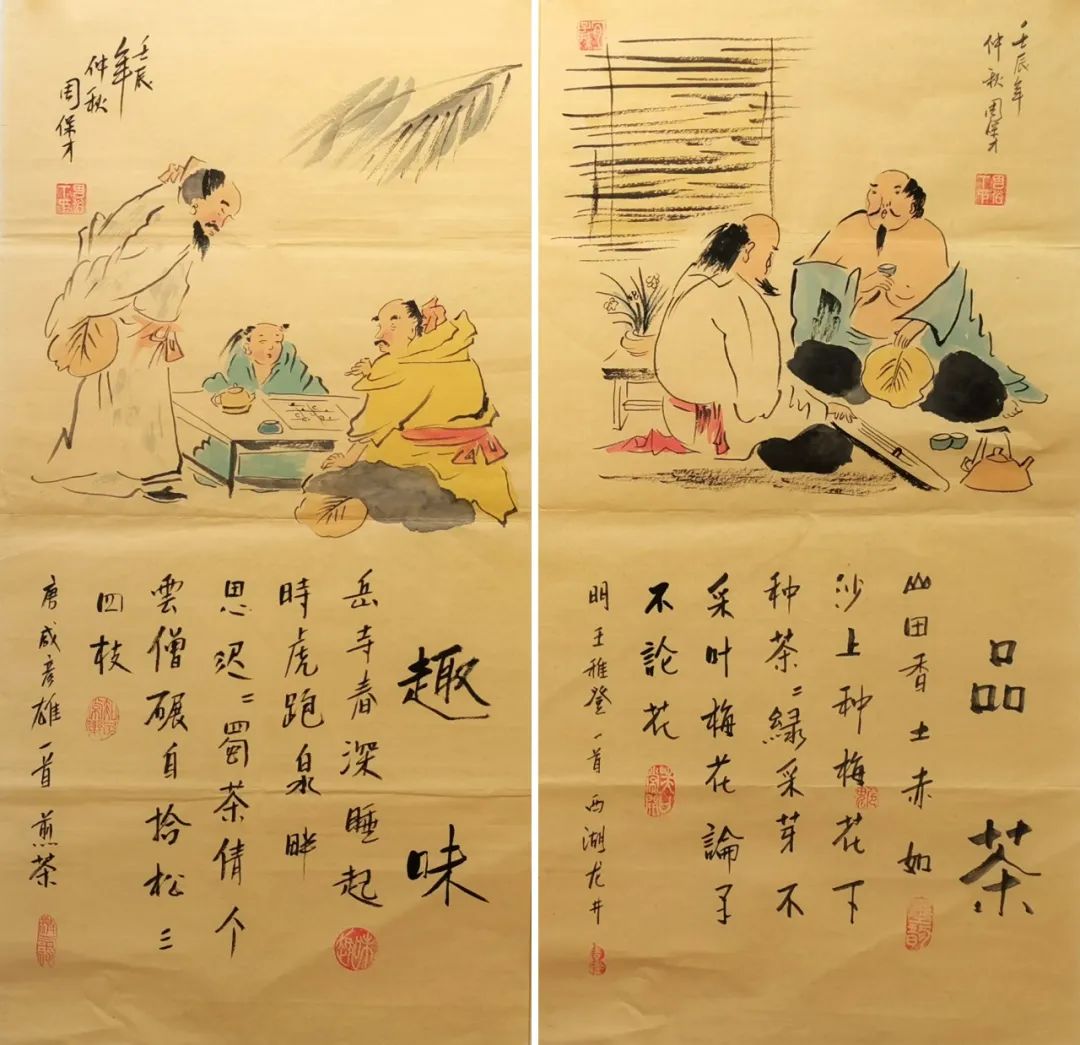 壬辰
年
仲秋
周保才
趣味
岳寺春深睡起
時虎跑泉畔
思迟〻蜀茶倩个
雲僧碾自拾松三
四枝
唐成彦雄一首煎茶
壬辰年
仲秋周保才
品茶
山田香土赤如
沙上种梅花下
种茶〻緑采芽不
采叶梅花論子
不論花
明王稚登一首西湖龙井